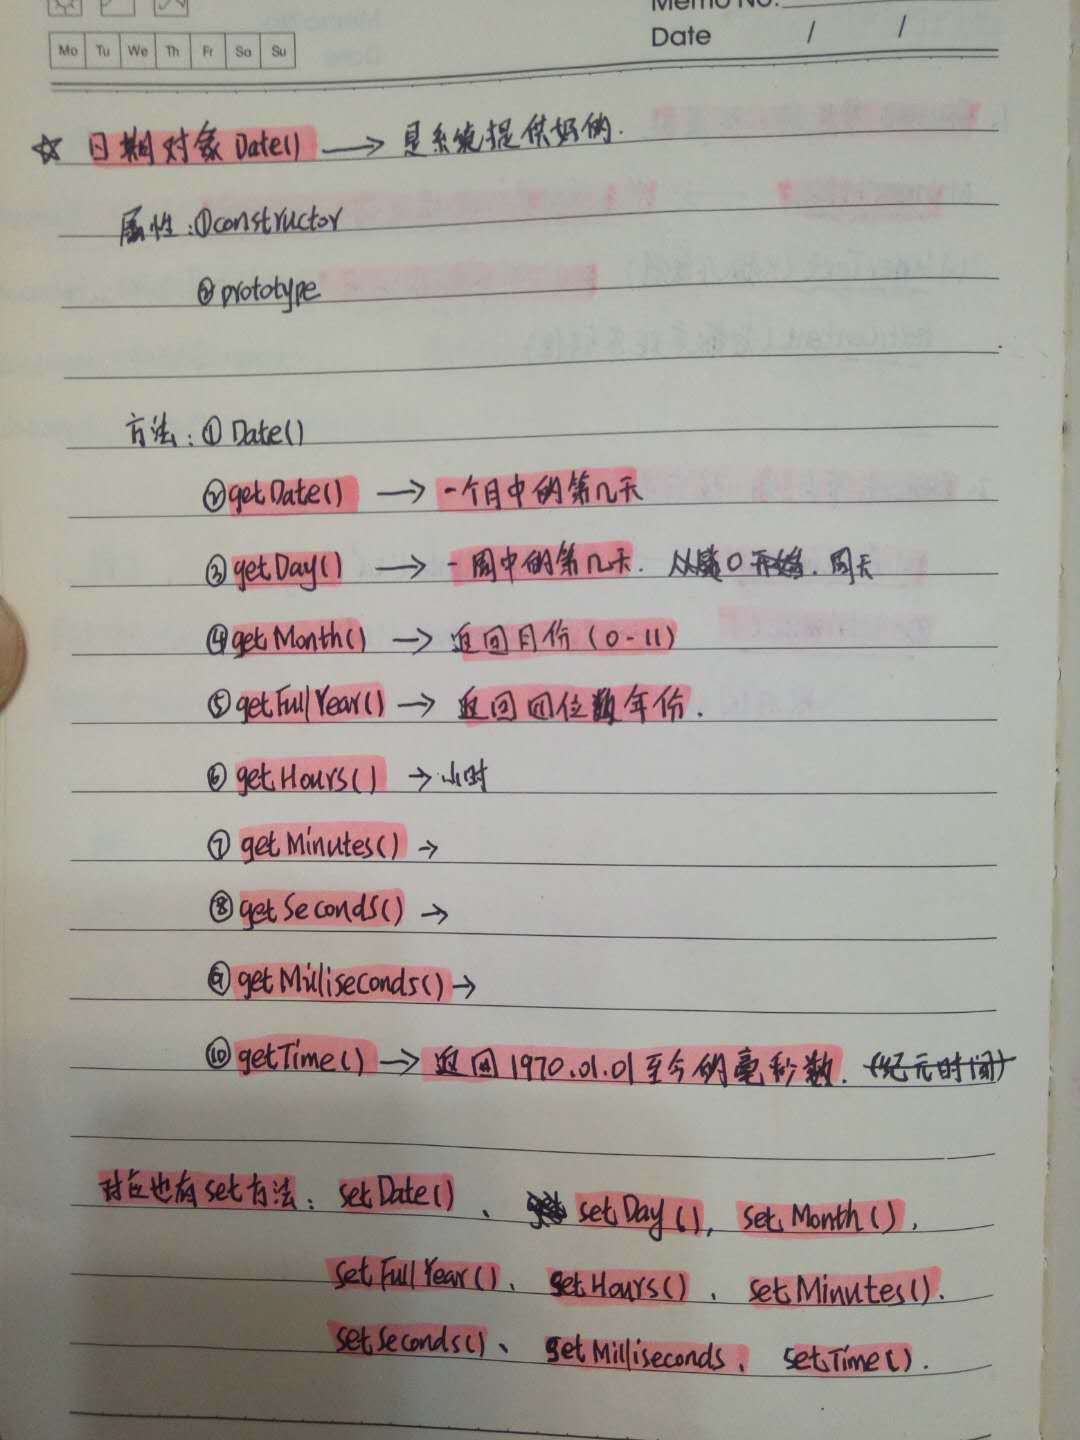 Memo No.
Mo Tu We Th Fr Sa Su
Date / /
☆ 日期对象 Date() → 是系统提供好的.
属性:①constructor
②prototype
方法:① Date()
②getDate() → 一个月中的第几天
③getDay() → 一周中的第几天. 从0开始. 周天
④getMonth() → 返回月份(0-11)
⑤getFullYear() → 返回四位数年份.
⑥getHours() → 小时
⑦getMinutes() →
⑧getSeconds() →
⑨getMilliseconds() →
⑩getTime() → 返回1970.01.01至今的毫秒数. (纪元时间)
对应也有set方法: setDate()、 setDay(), setMonth(),
setFullYear()、 setHours()、 setMinutes().
setSeconds()、 setMilliseconds、 setTime().